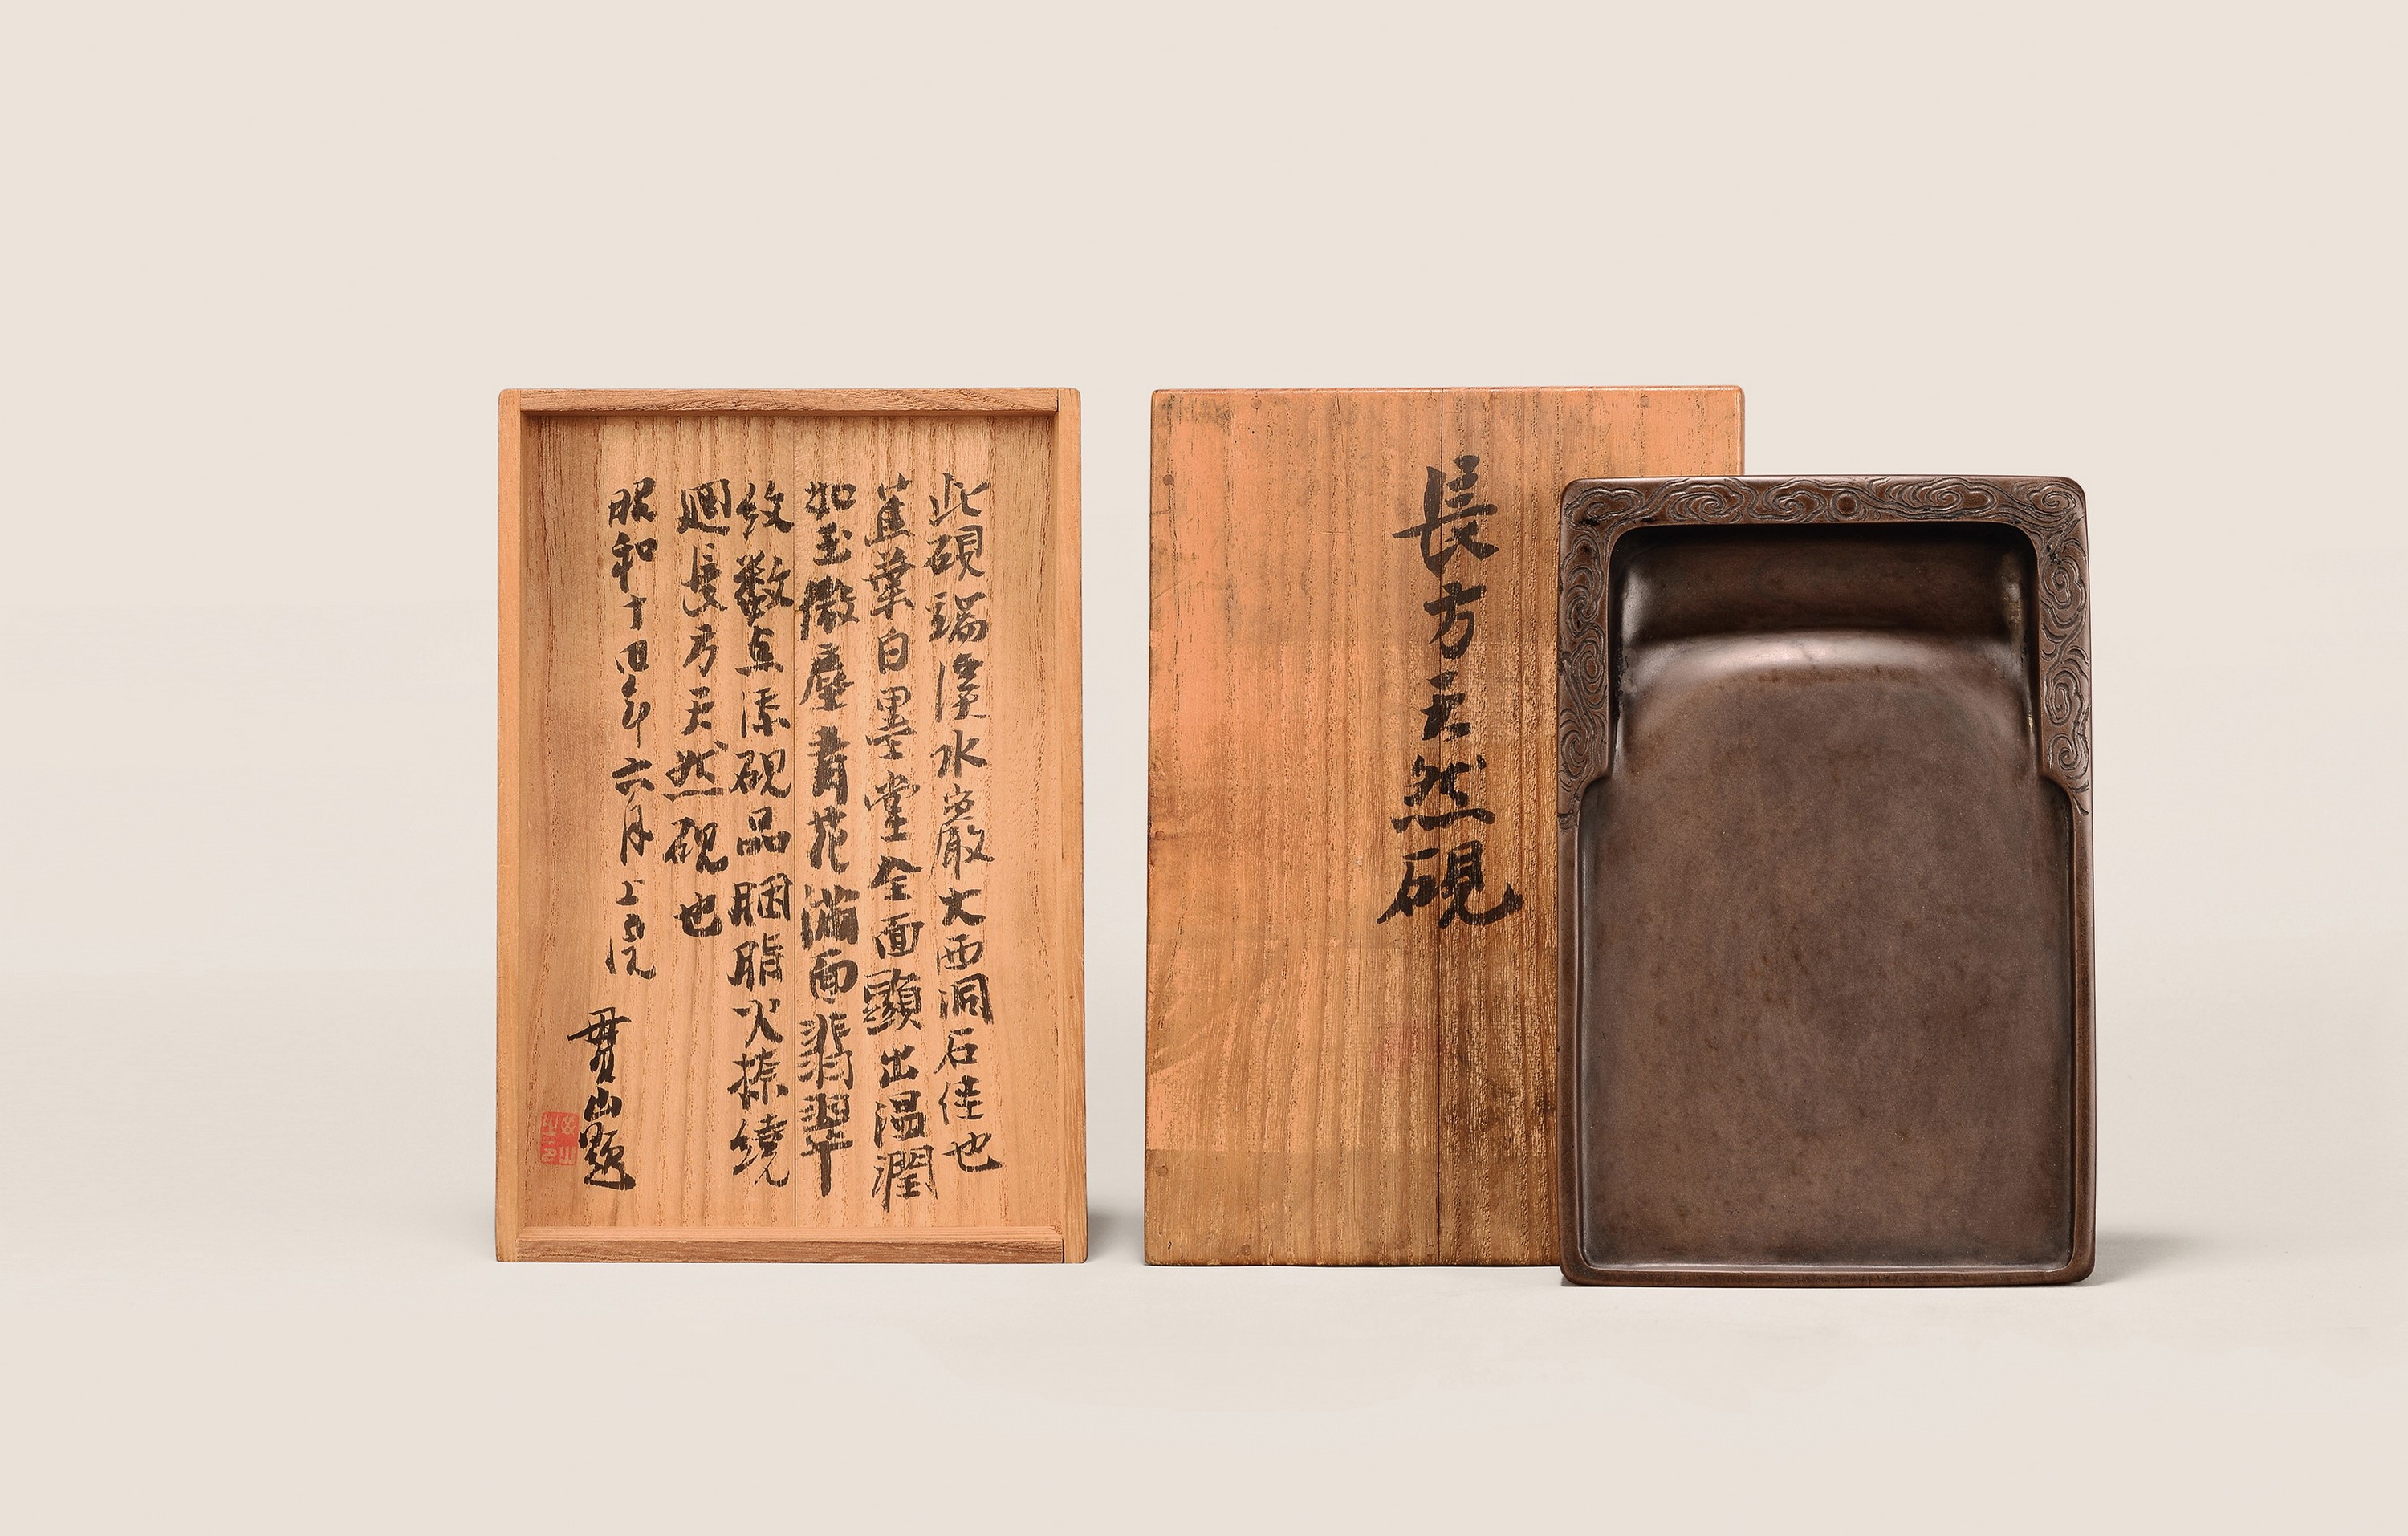 長方天然硯
此硯端溪水巖大西洞石佳也
蕉葉白墨堂全面顯出温潤
如玉微塵青花滿面翡翠
紋数点添硯品胭脂火捺繞
廻長方天然硯也
昭和十四年六月上浣
貫山題